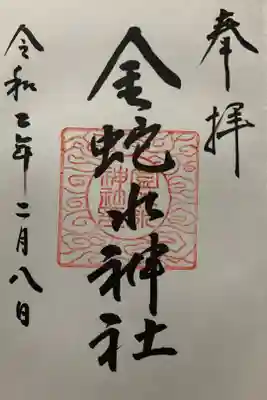 奉拝
金蛇水神社
令和三年二月八日